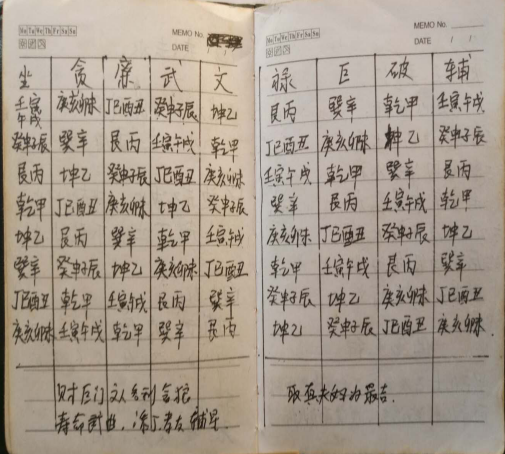 Mo Tu We Th Fr Sa Su
MEMO No.
DATE / /
坐 贪 廉 武 文
壬寅午戌 庚亥卯未 丁巳酉丑 癸申子辰 坤乙
癸申子辰 巽辛 艮丙 壬寅午戌 乾甲
艮丙 坤乙 癸申子辰 丁巳酉丑 庚亥卯未
乾甲 丁巳酉丑 庚亥卯未 坤乙 癸申子辰
坤乙 艮丙 巽辛 乾甲 壬寅午戌
巽辛 癸申子辰 坤乙 庚亥卯未 丁巳酉丑
丁巳酉丑 乾甲 壬寅午戌 艮丙 巽辛
庚亥卯未 壬寅午戌 乾甲 巽辛 艮丙
财才巨门 文人名利 狼
寿命武曲．添丁孝友辅星
Mo Tu We Th Fr Sa Su
MEMO No.
DATE / /
禄 巨 破 辅
艮丙 巽辛 乾甲 壬寅午戌
丁巳酉丑 庚亥卯未 坤乙 癸申子辰
壬寅午戌 乾甲 巽辛 艮丙
巽辛 艮丙 壬寅午戌 乾甲
庚亥卯未 丁巳酉丑 癸申子辰 坤乙
乾甲 壬寅午戌 艮丙 巽辛
癸申子辰 坤乙 庚亥卯未 丁巳酉丑
坤乙 癸申子辰 丁巳酉丑 庚亥卯未
取 夫妇为最吉．